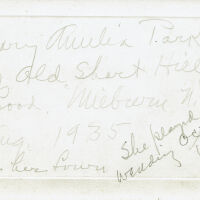 ary Amelia Park
Old Short Hill
ood. Milburn N.
ug. 1935
her town
She played
wedding